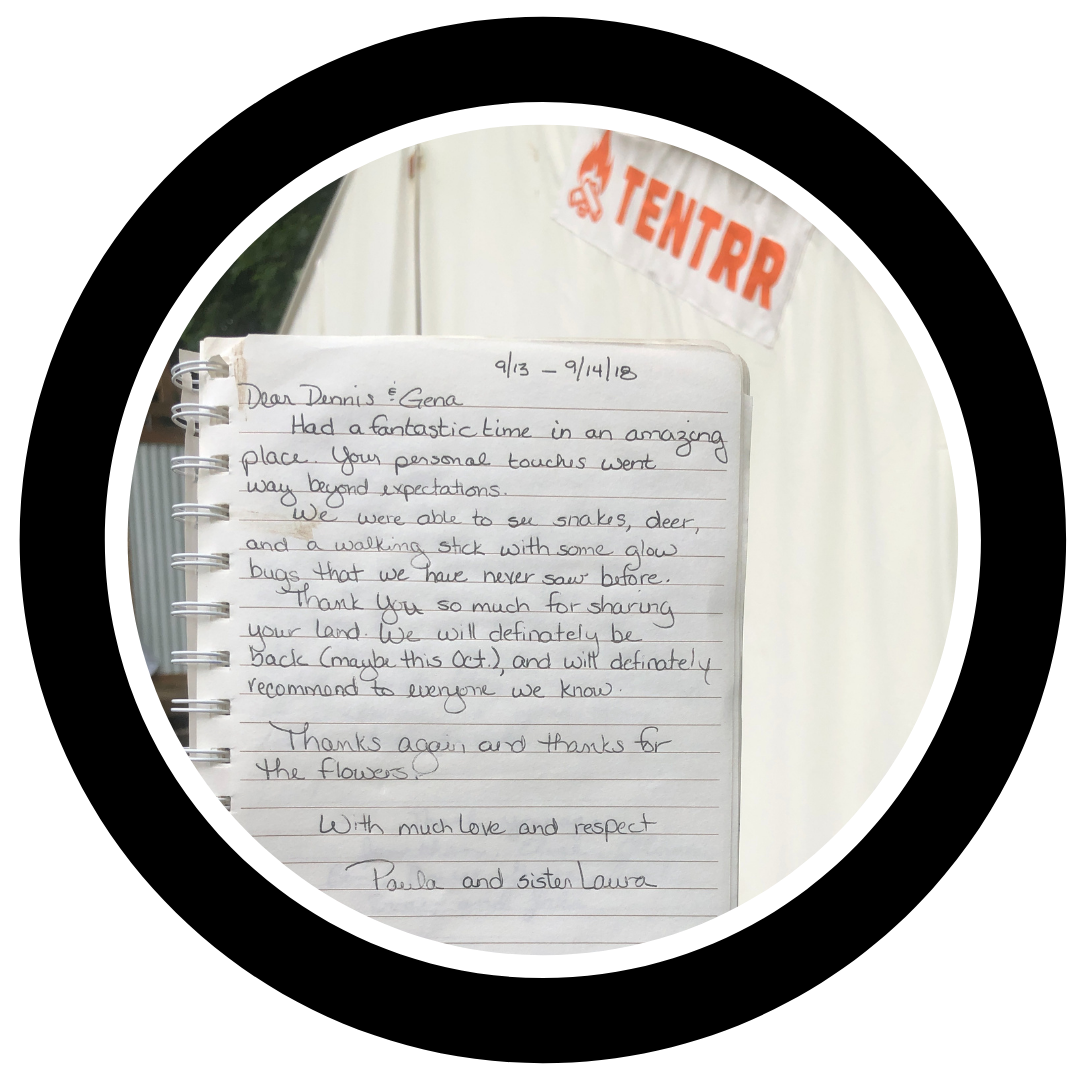 TENTRR
9/13 – 9/14/18
Dear Dennis & Gena
Had a fantastic time in an amazing
place. Your personal touches went
way beyond expectations.
We were able to see snakes, deer,
and a walking stick with some glow
bugs that we have never saw before.
Thank You so much for sharing
your land. We will definately be
back (maybe this Oct.), and will definately
recommend to everyone we know.
Thanks again and thanks for
the flowers!
With much love and respect
Paula and sister Laura